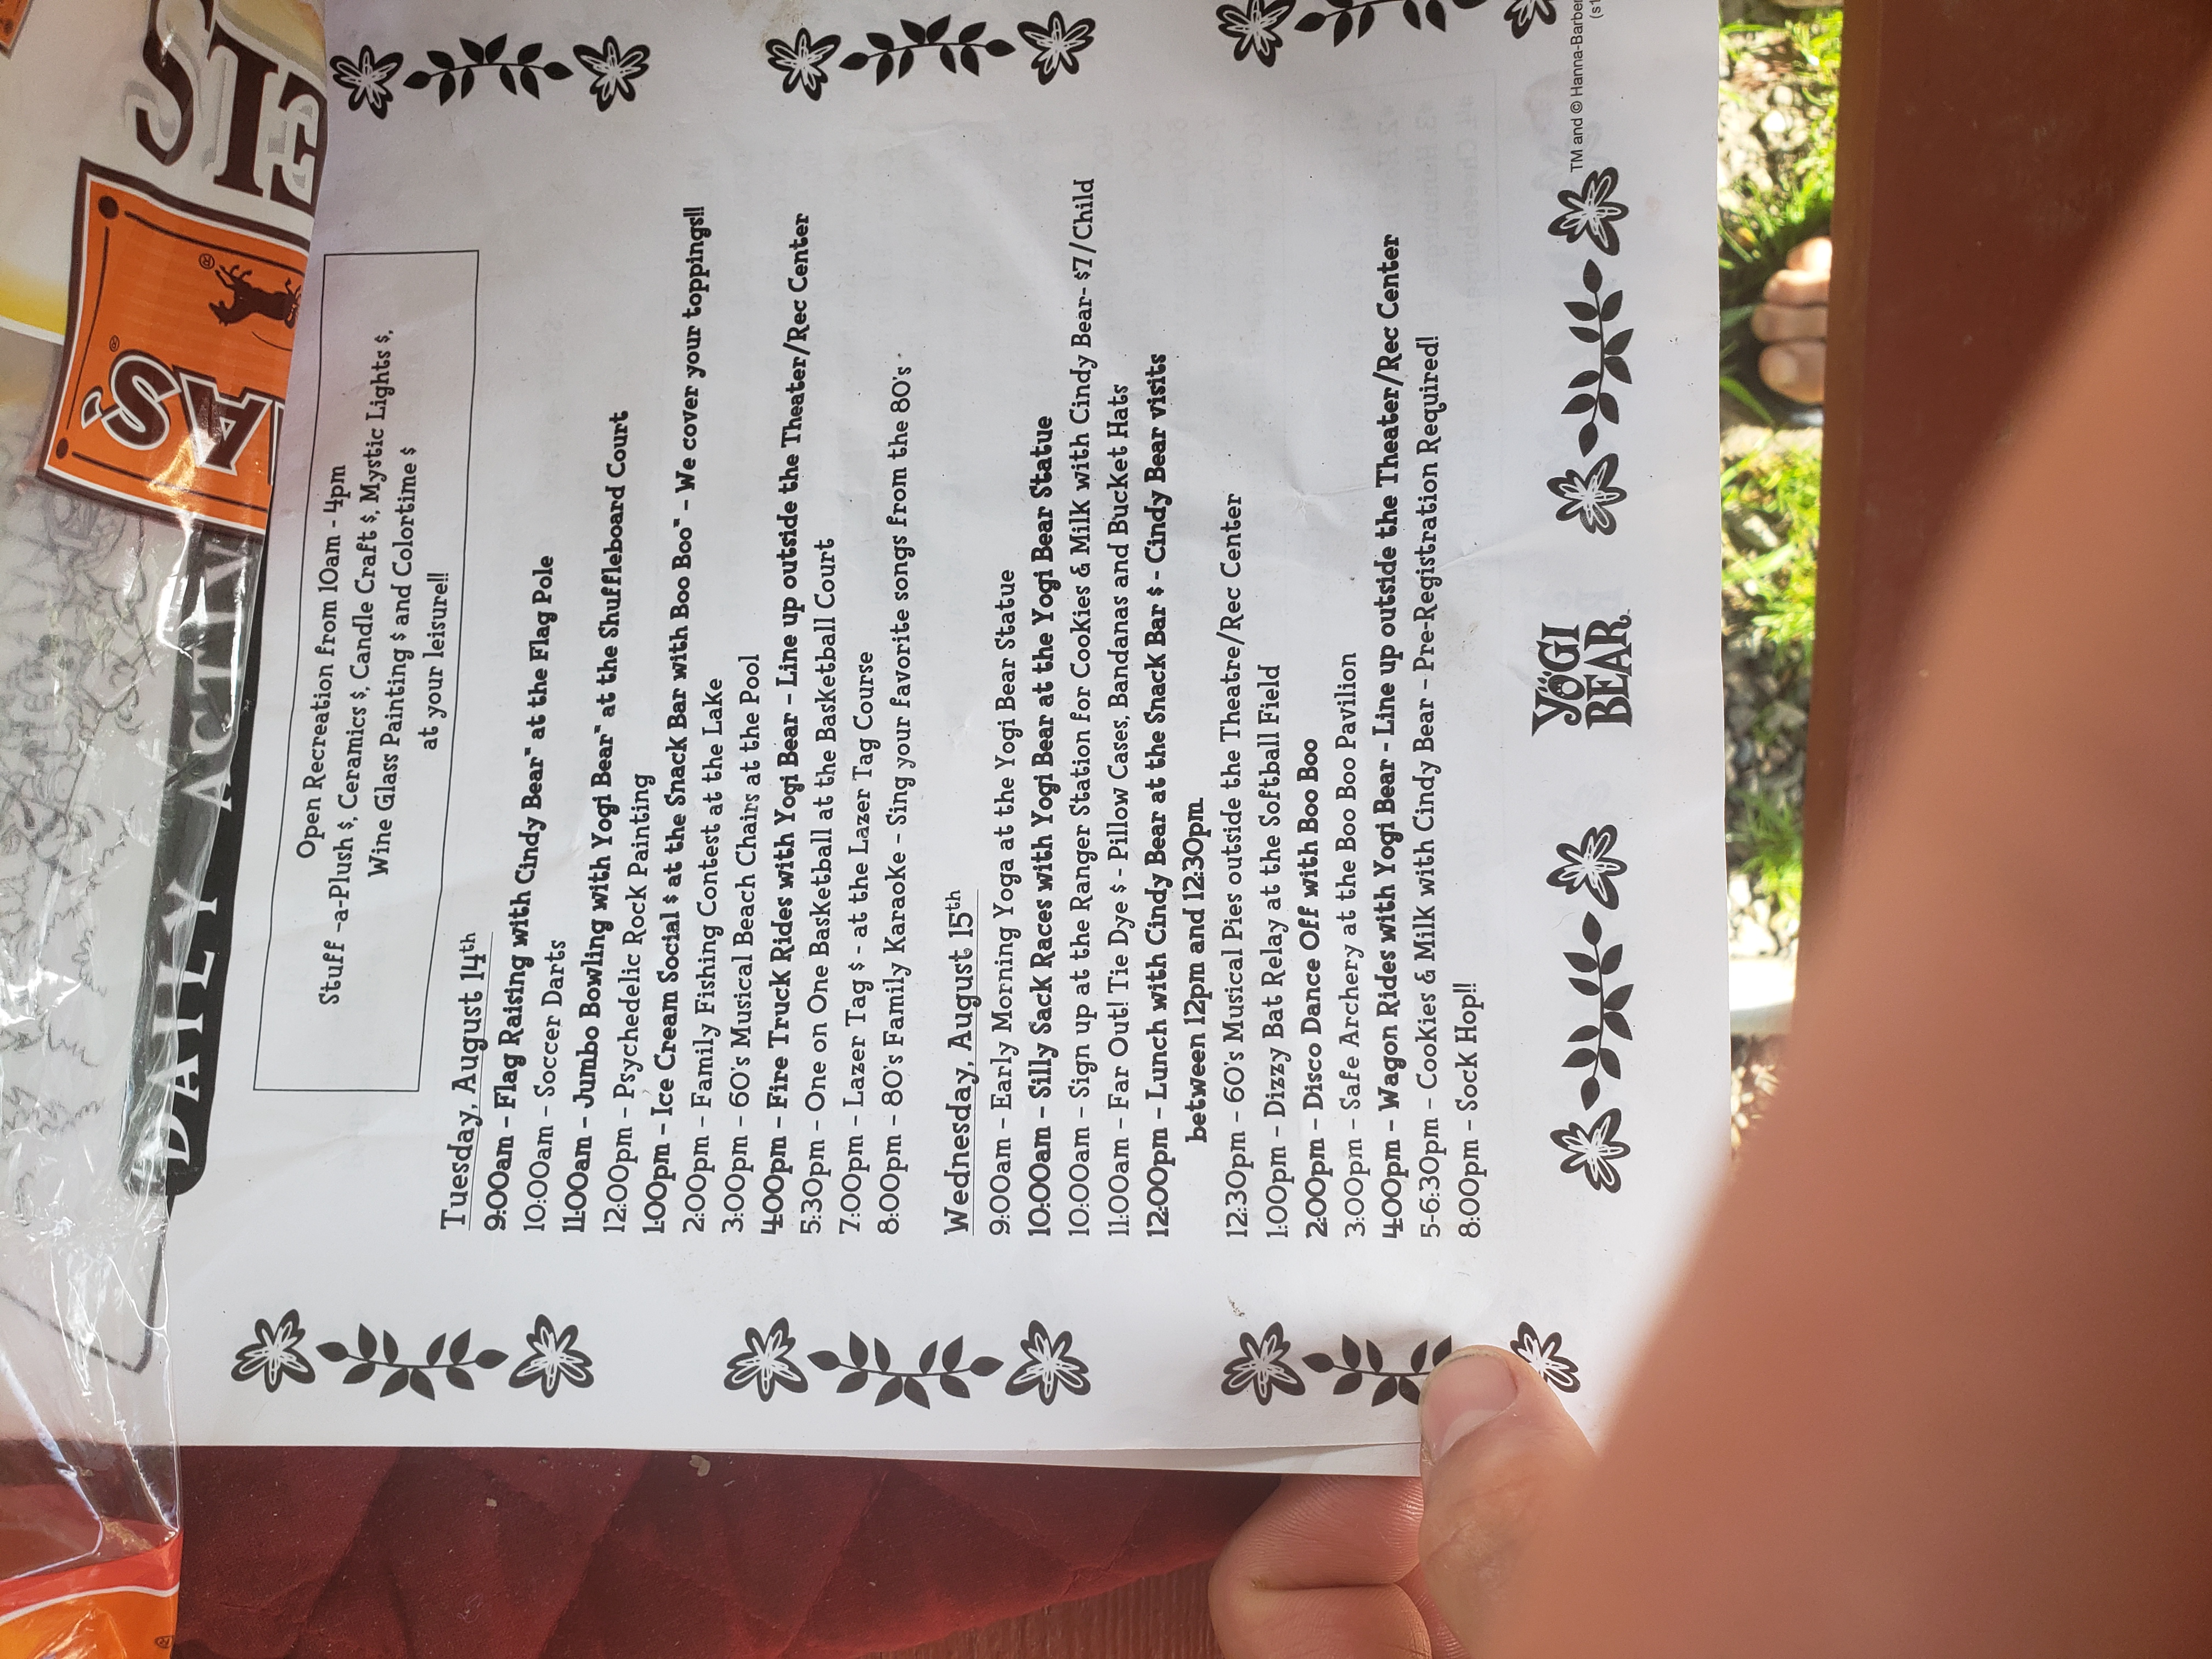 SIE
AS
®
®
DAILY ACTIV
Open Recreation from 10am - 4pm
Stuff -a-Plush $, Ceramics $, Candle Craft $, Mystic Lights $,
Wine Glass Painting $ and Colortime $
at your leisure!!
Tuesday, August 14th
9:00am - Flag Raising with Cindy Bear™ at the Flag Pole
10:00am - Soccer Darts
11:00am - Jumbo Bowling with Yogi Bear™ at the Shuffleboard Court
12:00pm - Psychedelic Rock Painting
1:00pm - Ice Cream Social $ at the Snack Bar with Boo Boo™ - We cover your toppings!!
2:00pm - Family Fishing Contest at the Lake
3:00pm - 60's Musical Beach Chairs at the Pool
4:00pm - Fire Truck Rides with Yogi Bear - Line up outside the Theater/Rec Center
5:30pm - One on One Basketball at the Basketball Court
7:00pm - Lazer Tag $ - at the Lazer Tag Course
8:00pm - 80's Family Karaoke - Sing your favorite songs from the 80's
Wednesday, August 15th
9:00am - Early Morning Yoga at the Yogi Bear Statue
10:00am - Silly Sack Races with Yogi Bear at the Yogi Bear Statue
10:00am - Sign up at the Ranger Station for Cookies & Milk with Cindy Bear- $7/Child
11:00am - Far Out! Tie Dye $ - Pillow Cases, Bandanas and Bucket Hats
12:00pm - Lunch with Cindy Bear at the Snack Bar $ - Cindy Bear visits
between 12pm and 12:30pm
12:30pm - 60's Musical Pies outside the Theatre/Rec Center
1:00pm - Dizzy Bat Relay at the Softball Field
2:00pm - Disco Dance Off with Boo Boo
3:00pm - Safe Archery at the Boo Boo Pavilion
4:00pm - Wagon Rides with Yogi Bear - Line up outside the Theater/Rec Center
5-6:30pm - Cookies & Milk with Cindy Bear - Pre-Registration Required!
8:00pm - Sock Hop!!
YOGI
BEAR
TM and © Hanna-Barber
(s1